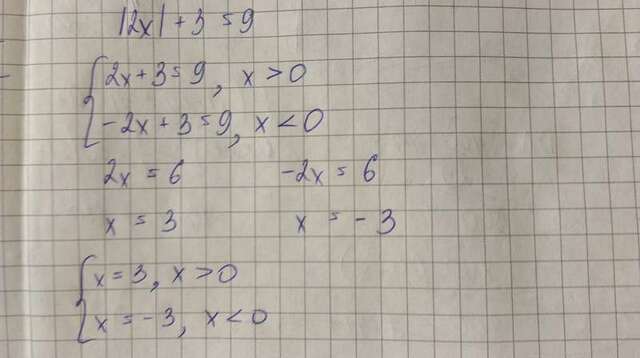 |2x| + 3 = 9
2x + 3 = 9, x > 0
-2x + 3 = 9, x < 0
2x = 6 -2x = 6
x = 3 x = -3
x = 3, x > 0
x = -3, x < 0